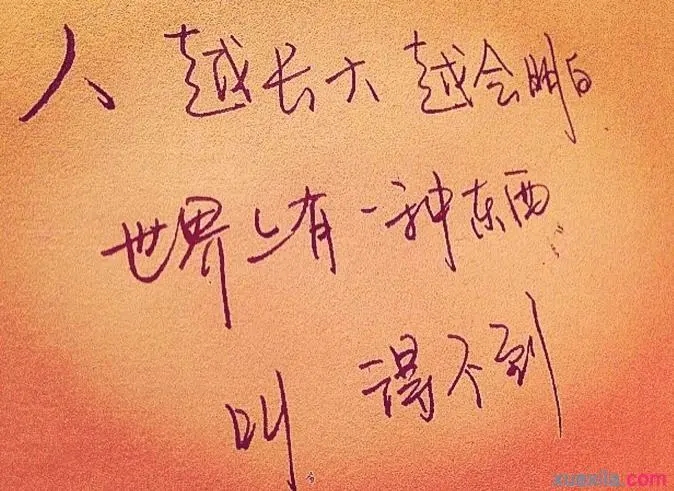 人 越长大 越会明白
世界上有一种东西
叫 得不到
xuexila.com